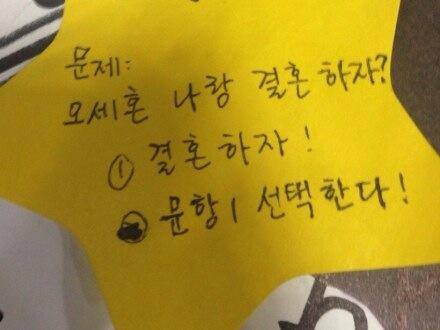 문제:
오세훈 나랑 결혼하자?
① 결혼하자!
● 문항1 선택한다!